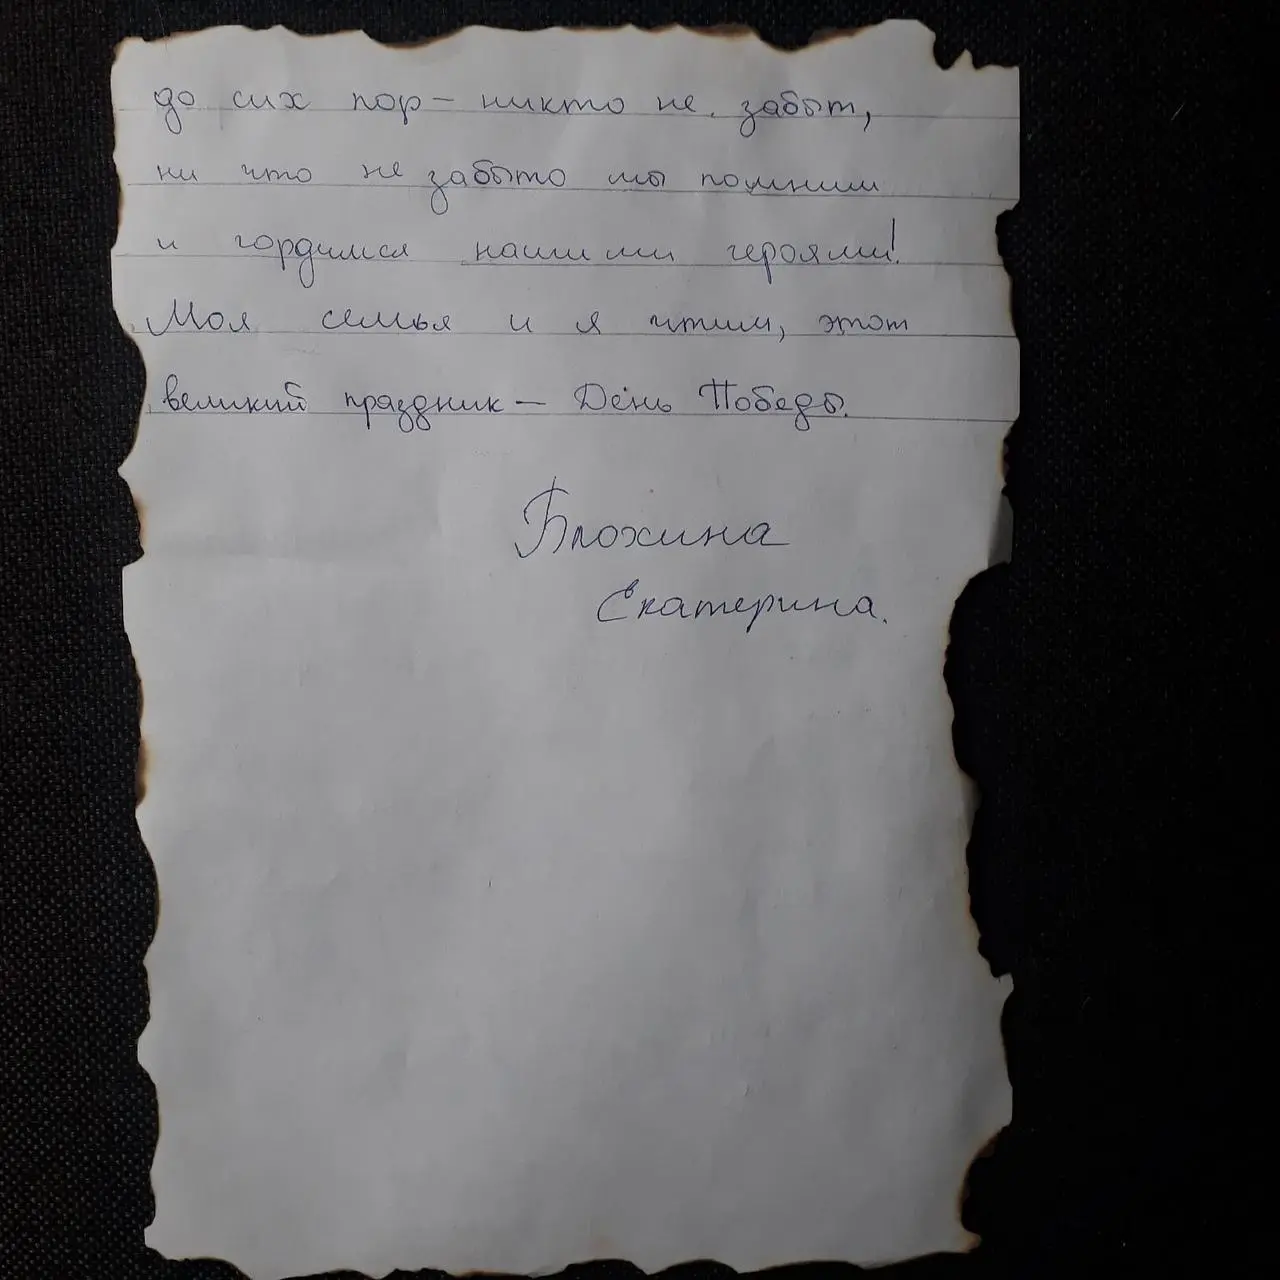 до сих пор – никто не забыт,
ни что не забыто мы помним
и гордимся нашими героями!
Моя семья и я чтим, этот
великий праздник – День Победы.
Блохина
Екатерина.